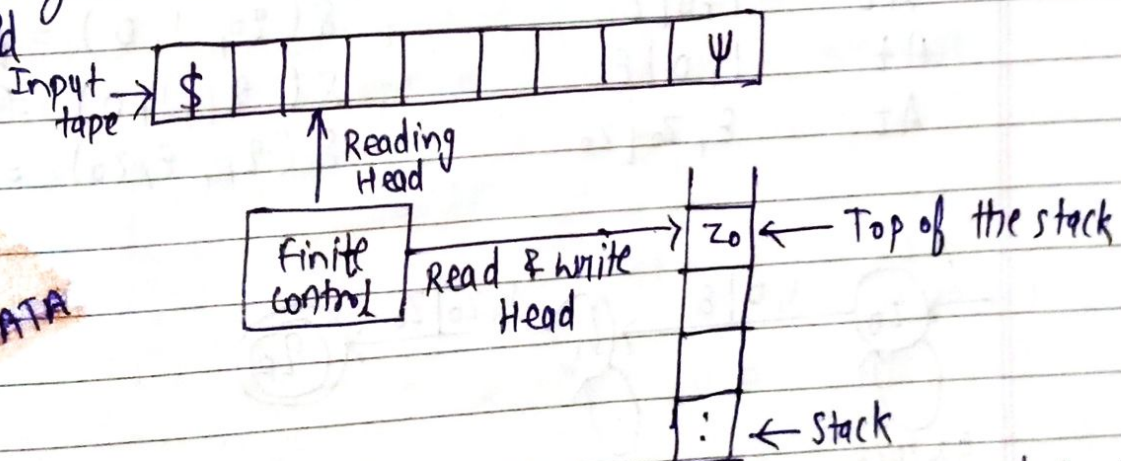 d
Input
tape
$
Ψ
Reading
Head
Finite
control
Read & write
Head
Z₀
Top of the stack
ATA
:
Stack